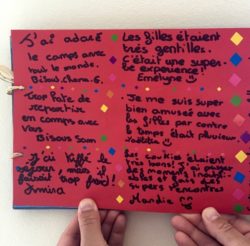 J'ai adoré
le camps avec
tout le monde.
Bisous, Cham. G.
Trop hate de
repartir
en camps avec
vous
Bisous Sam
J'ai kiffé le
séjour, mais il
faisait trop froid!
Amira
Les filles étaient
très gentilles.
C'était une super-
be experience!
Emelyne
Je me suis super
bien amusée avec
les filles par contre
le temps était pluvieux
Les cookies étaient
très bons! J'ai passer
des moments inoubli-
ables et fais des
supers rencontres
Mandie